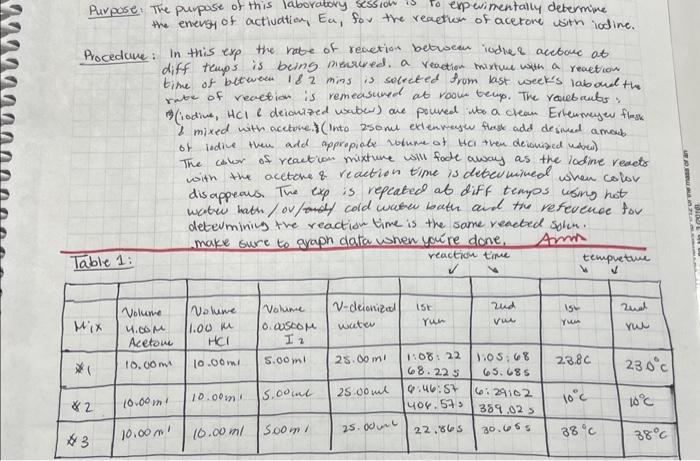 Purpose: The purpose of this laboratory session is to experimentally determine
the energy of activation, Ea, for the reaction of acetone with iodine.
Procedure: In this exp the rate of reaction between iodine & acetone at
diff temps is being measured. a reaction mixture with a reaction
time of between 1 & 2 mins is selected from last week's lab and the
rate of reaction is remeasured at room temp. The
(iodine, HCl & deionized water) are poured into a clean Erlenmeyer flask
& mixed with acetone. (Into 250ml erlenmeyer flask add desired amout
of iodine then add appropiate volume of HCl then deionized water)
The color of reaction mixture will fade away as the iodine reacts
with the acetone & reaction time is determined when color
disappears. The exp is repeated at diff temps using hot
water bath / or / cold water bath and the reference for
determining the reaction time is the same reacted soln.
make sure to graph data when you're done.
Table 1: reaction time tempreture
Mix Volume 4.00M Acetone Volume 1.00 M HCl Volume 0.00500M I2 V-deionized water 1st run 2nd run 1st run 2nd run
#1 10.00ml 10.00ml 5.00ml 25.00ml 1:08:22 68.22s 1:05:68 65.68s 23.8C 23.0°C
#2 10.00ml 10.00ml 5.00ml 25.00ml 6:46:57 406.57s 6:29:02 389.02s 10°C 10°C
#3 10.00ml 10.00ml 5.00ml 25.00ml 22.86s 30.65s 38°C 38°C